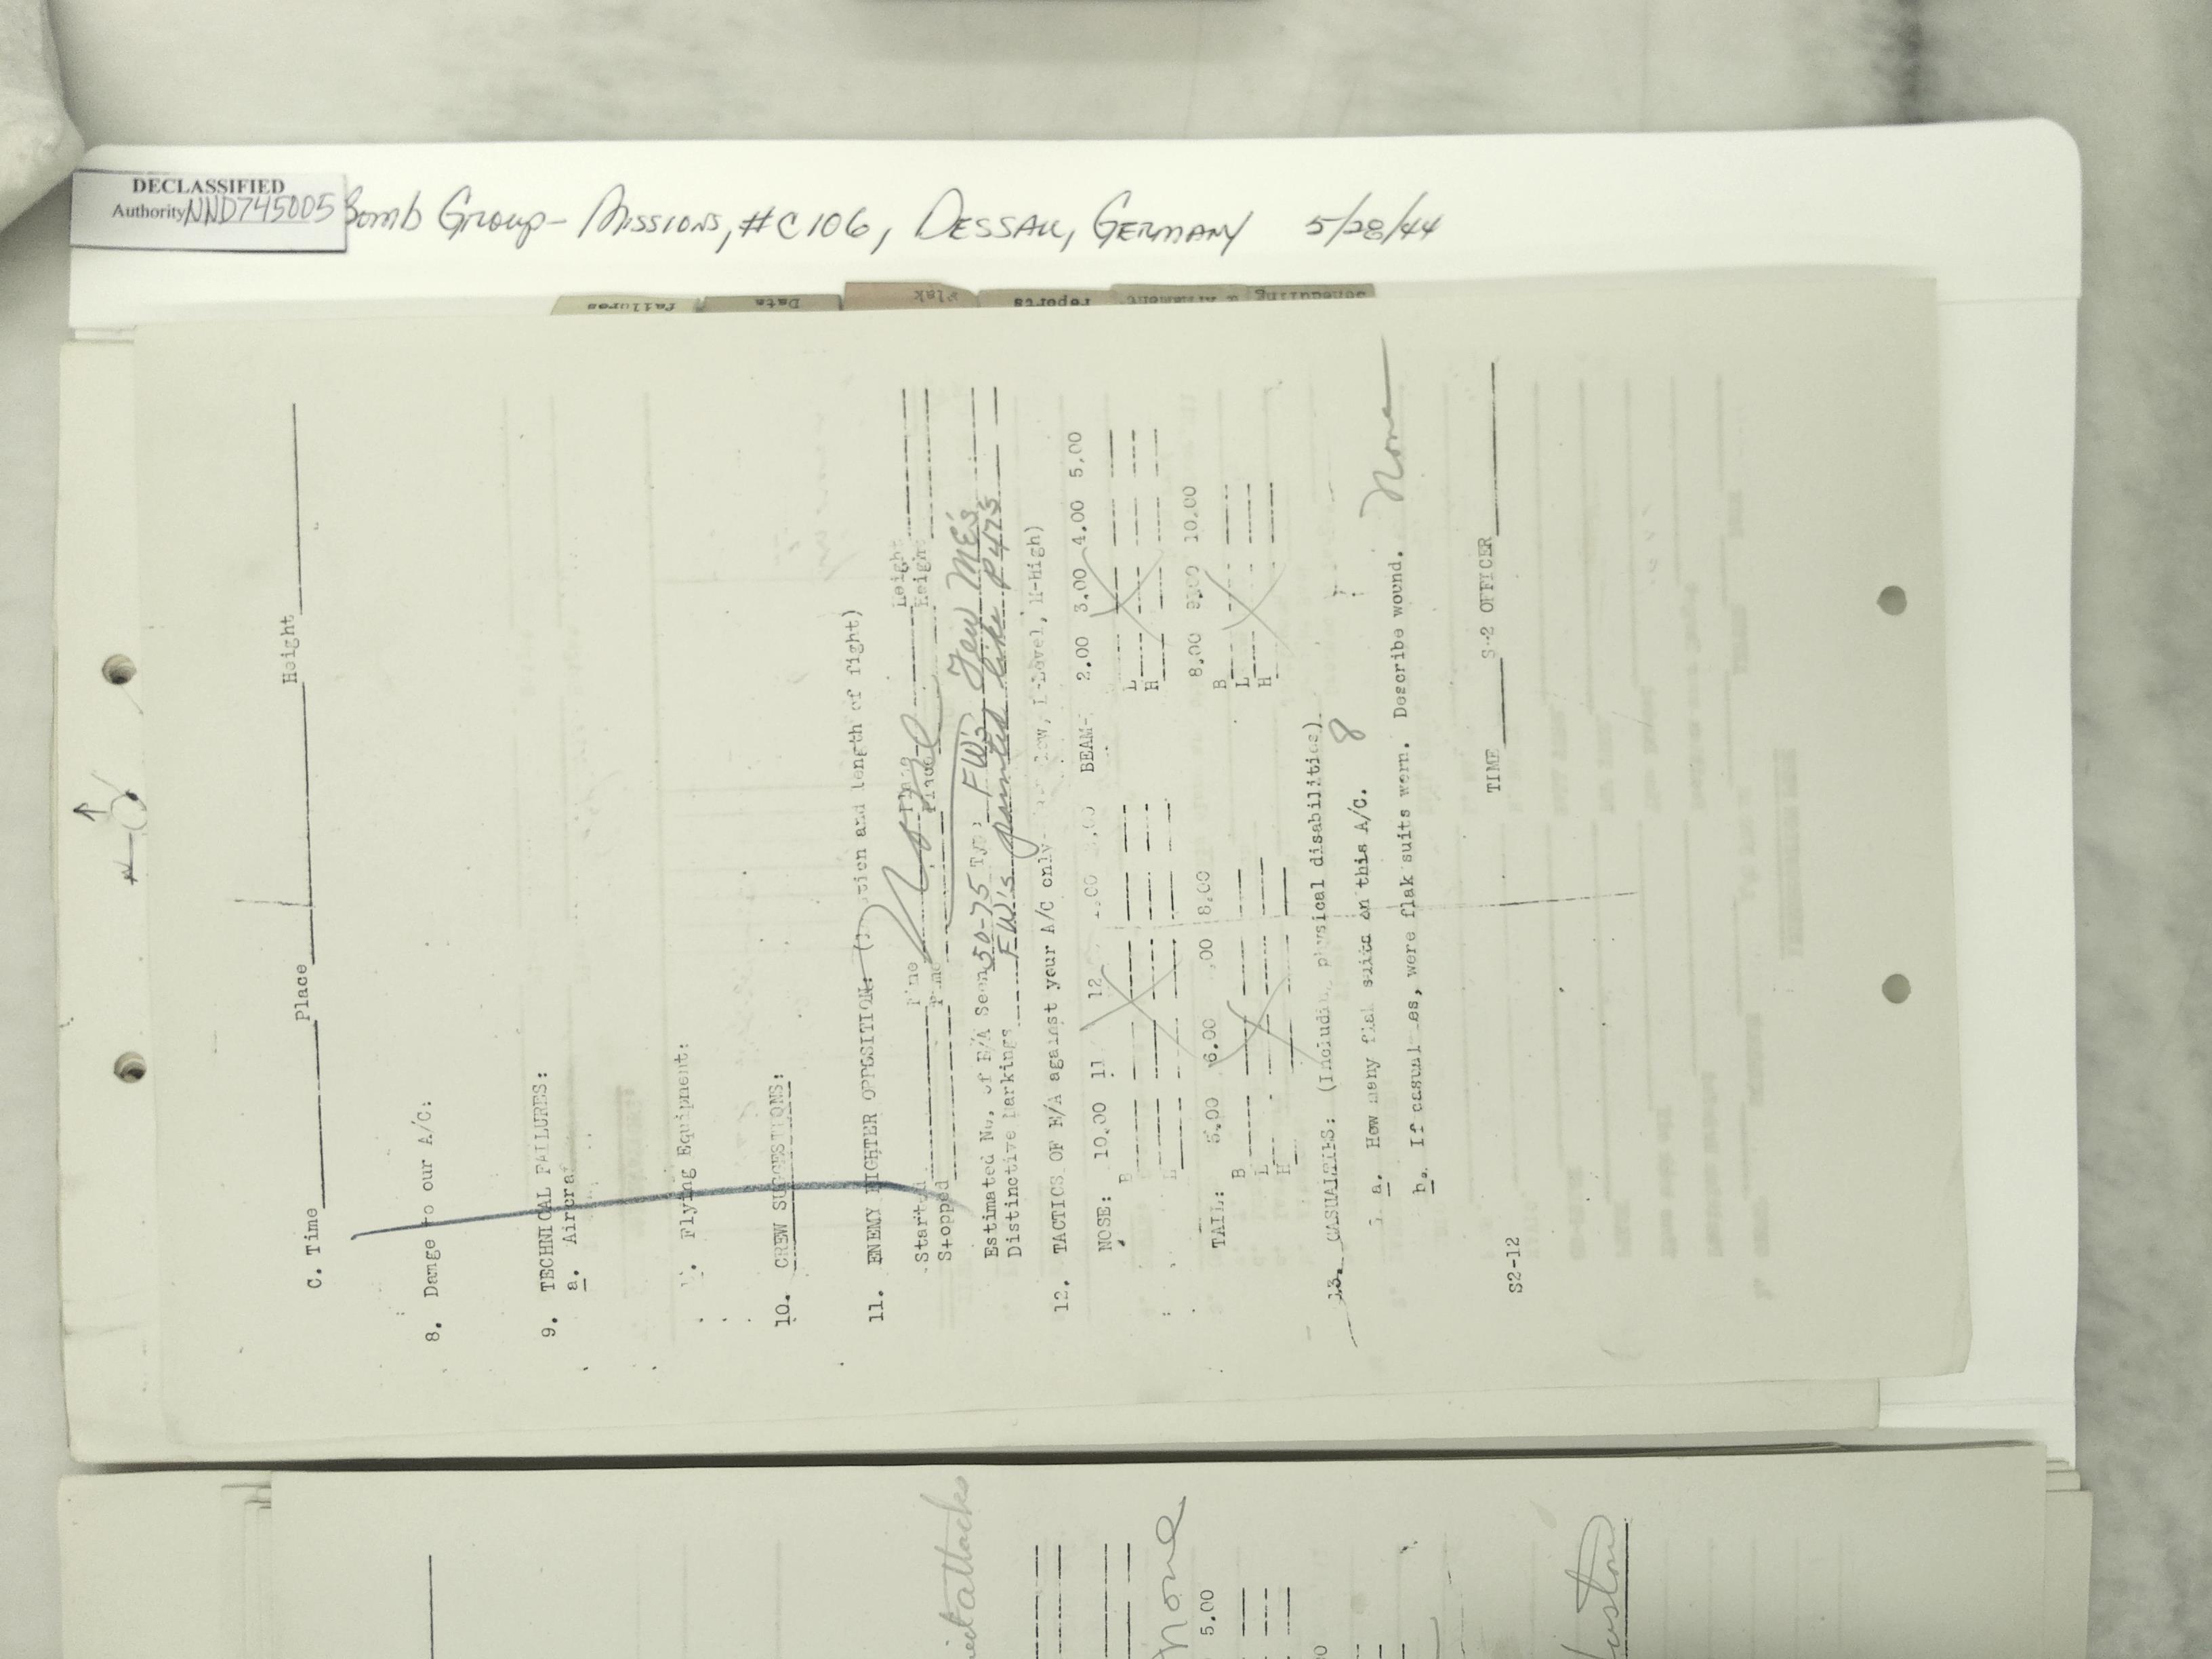 DECLASSIFIED
Authority NND745005
Bomb Group - Missions, #C106, Dessau, Germany 5/28/44
failures
Data
Flak
reports
Scheduling & Armament
C. Time Place Height
8. Damge to our A/C:
9. TECHNICAL FAILURES:
a. Aircraf
Flying Equipment:
10. CREW SUGGESTIONS:
11. ENEMY FIGHTER OPPOSITION: ( tion and length of fight)
Started Time Place Height
Stopped Time Place Height
None
Estimated No. of E/A Seen 50-75 Type FW's Few ME's
Distinctive Markings FW's painted like P47s
12. TACTICS OF E/A against your A/C only- Low, L-Level, H-High)
NOSE: 10.00 11 12 BEAM- 2.00 3.00 4.00 5.00
B
L
H
TAIL: 5.00 6.00 .00 8.00 8.00 9.00 10.00
B B
L L
H H
13. CASUALTIES: (Including physical disabilities).
a. How many flak suits on this A/C. 8
b. If casual es, were flak suits worn. Describe wound. None
TIME S-2 OFFICER
S2-12
attacks
None
5.00